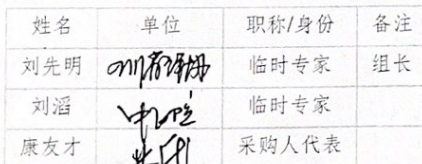 姓名 单位 职称/身份 备注
刘先明 临时专家 组长
刘滔 临时专家
康友才 采购人代表